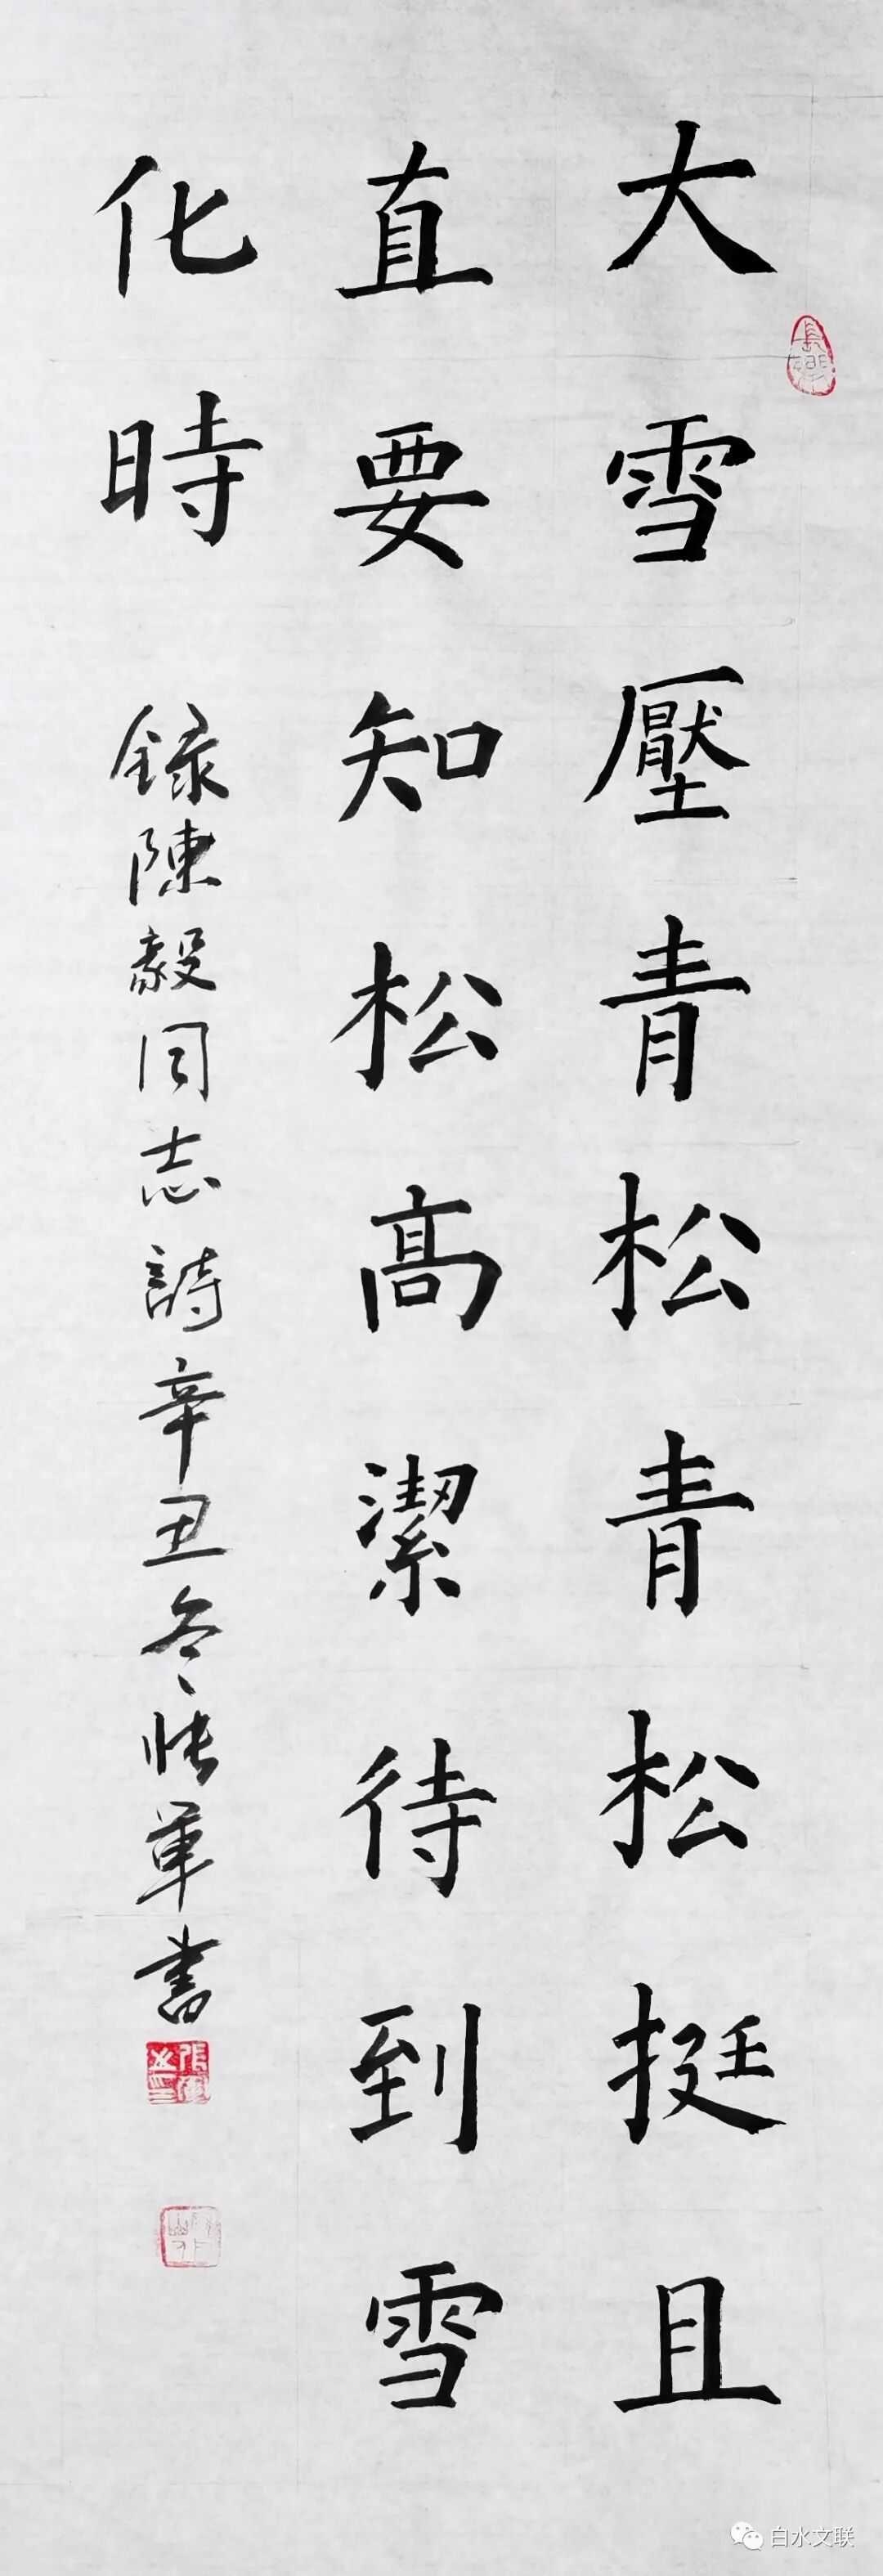 大雪壓青松青松挺且
直要知松高潔待到雪
化時
錄陳毅同志詩辛丑冬張軍書
白水文联